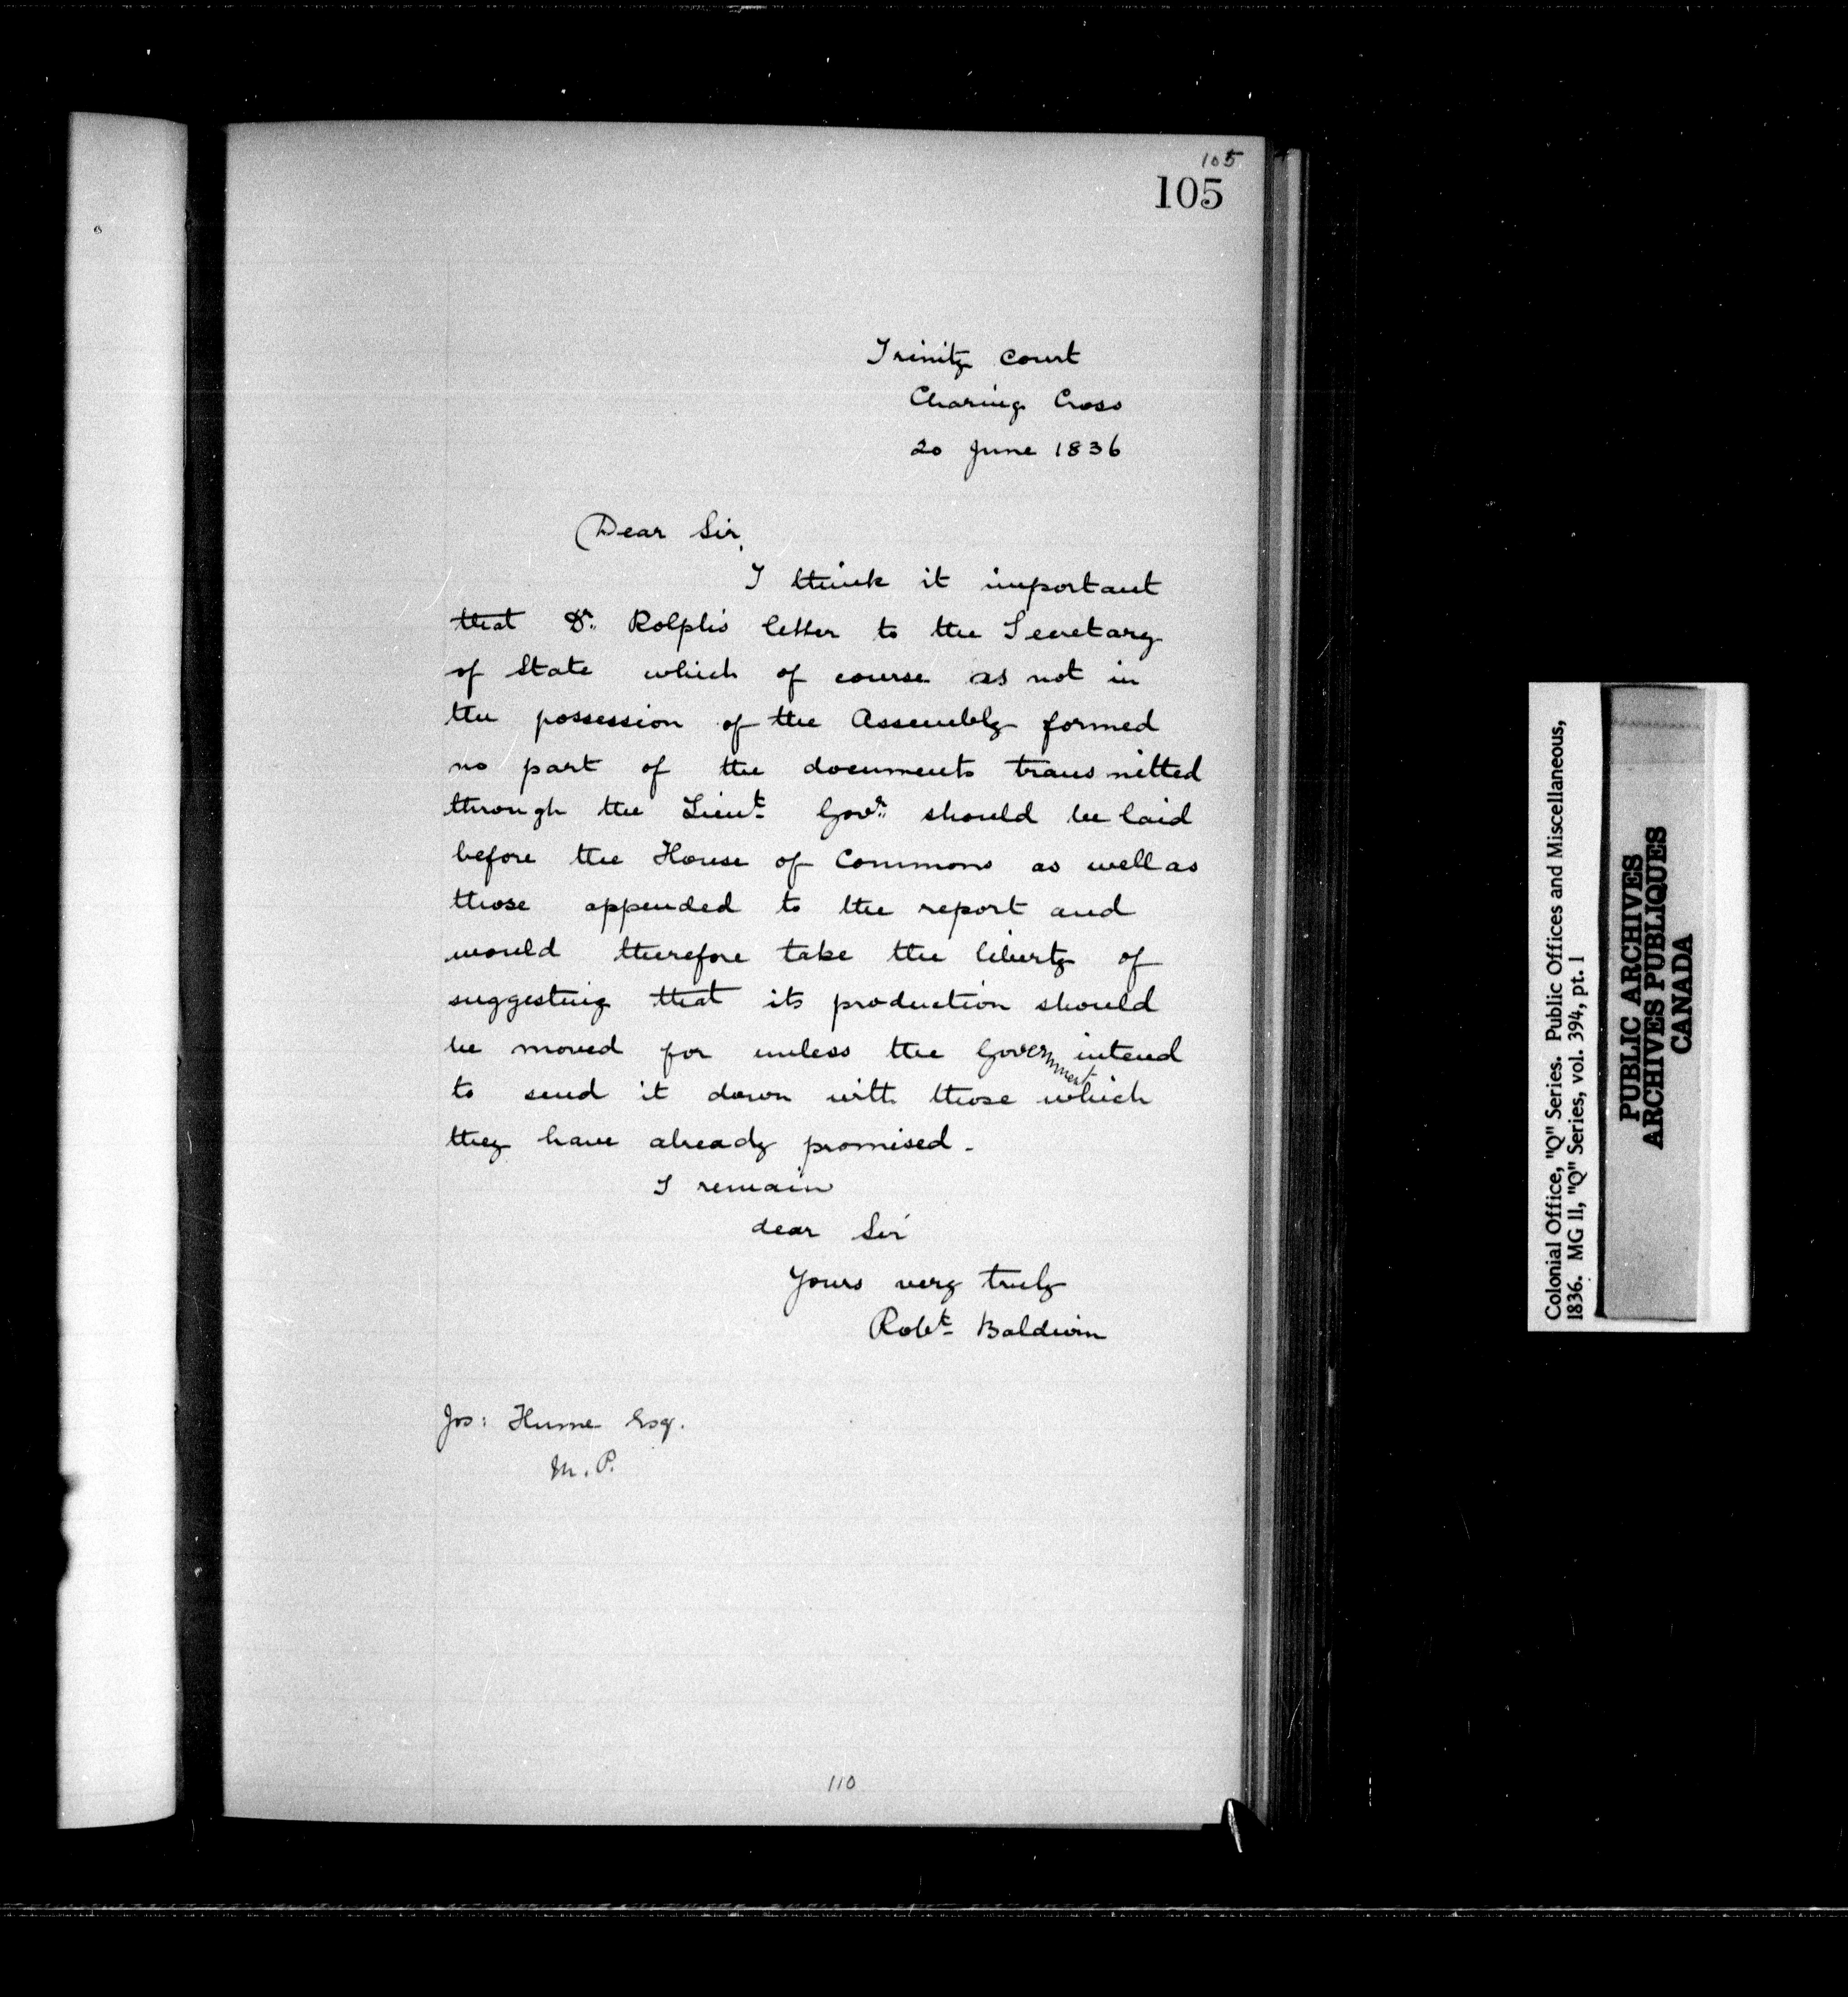 105
105
Trinity Court
Charing Cross
20 June 1836
Dear Sir,
I think it important
that Dr. Rolph's letter to the Secretary
of State which of course as not in
the possession of the Assembly formed
no part of the documents transmitted
through the Lieut. Govr. should be laid
before the House of Commons as well as
those appended to the report and
would therefore take the liberty of
suggesting that its production should
be moved for unless the Government intend
to send it down with those which
they have already promised.
I remain
dear Sir
Yours very truly
Robt. Baldwin
Jos: Hume Esq.
M.P.
110
Colonial Office, "Q" Series. Public Offices and Miscellaneous,
1836. MG 11, "Q" Series, vol. 394, pt. 1
PUBLIC ARCHIVES
ARCHIVES PUBLIQUES
CANADA